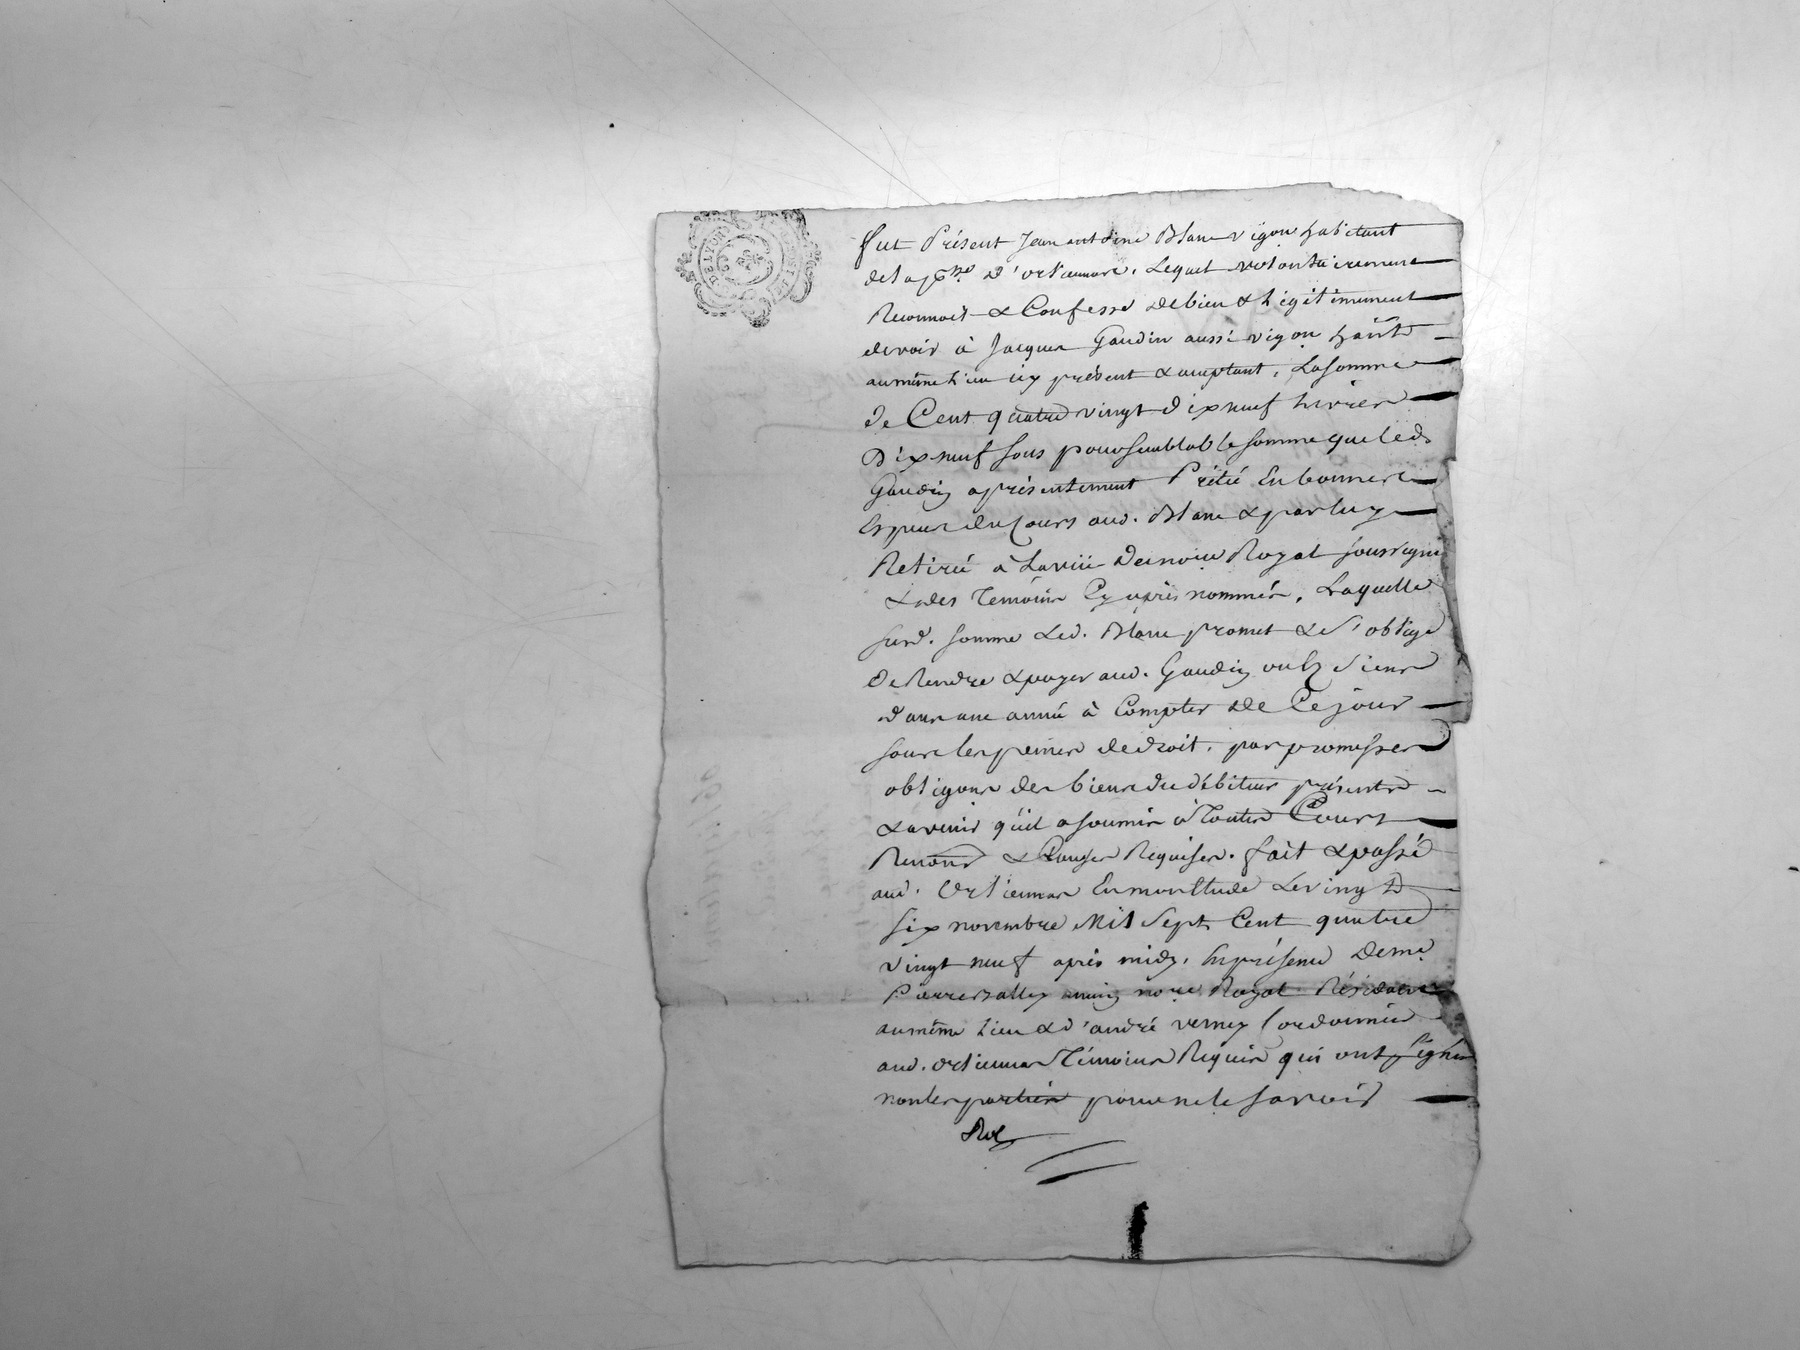 fut Présent Jean antoine Blanc vigon habitant
de la p.sse d'ortiemare. Lequel volontairement
Reconnoit & Confesse debien & Légitimement
devoir à Jacques Gaudin aussi vigon hãnt
aumême Lieu icy présent & acceptant, La somme
de Cent quatre vingt dixneuf Livres
Dixneuf sous pour semblable somme que led.
Gaudin a présentement Prêté En bonnes
Espèces du Cours aud. Blanc & par luy
Retiré à La vüe de nore Royal soussigné
& des Temoins Cy après nommés, Laquelle
susd. somme Led. Blanc promet & s'oblige
de Rendre & payer aud. Gaudin ou les siens
dans une année à Compter de Ce jour
sous les peines de droit, par promesses
obligons des biens du débiteur présents
& avenir qu'il a soumis à Toutes Cours
Renons & Clauses Requises. fait & passé
aud. Ortiemar En mon Etude Le vingt
six novembre Mil sept Cent quatre
vingt neuf après midy, En présence de me.
Pierre nore Royal Résident
au même Lieu & d'andré verney Cordonnier
aud. ortiemar Témoins Requis qui ont signés
non les parties pour ne le savoir